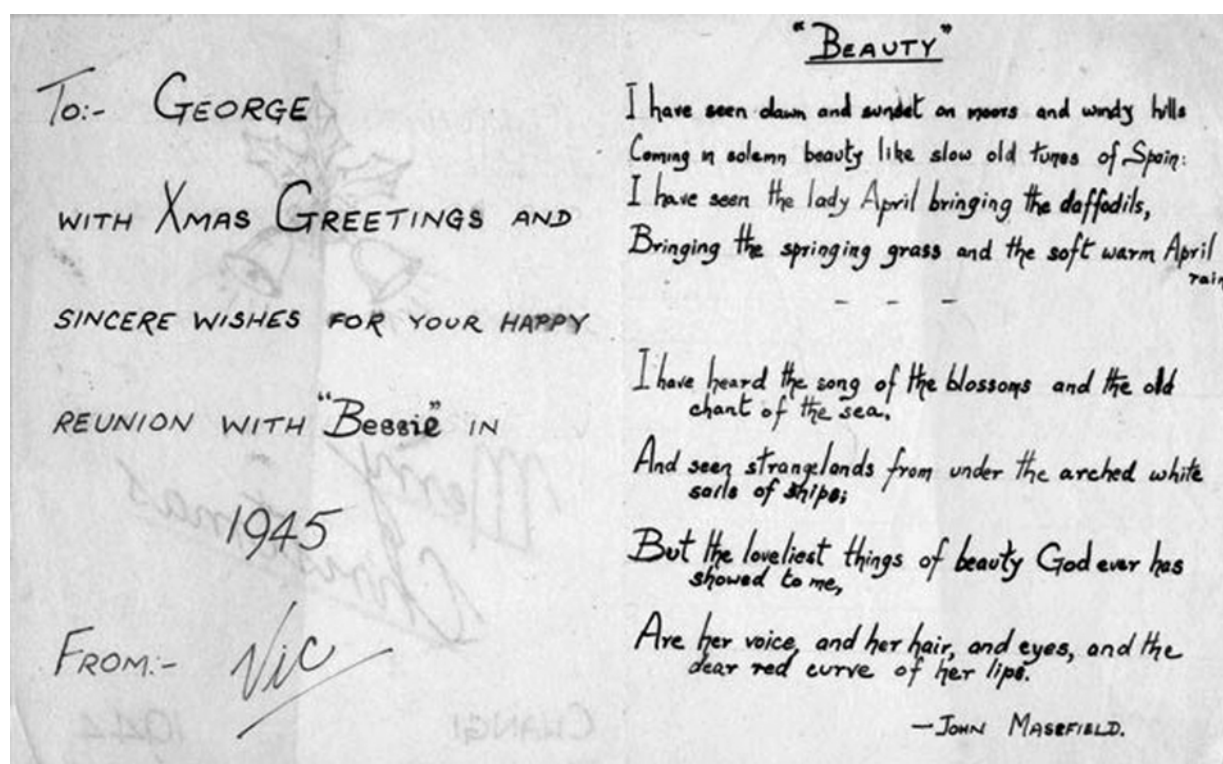 To:- GEORGE
WITH XMAS GREETINGS AND
SINCERE WISHES FOR YOUR HAPPY
REUNION WITH "Bessie" IN
1945
FROM:- Vic
"BEAUTY"
I have seen dawn and sunset on moors and windy hills
Coming in solemn beauty like slow old tunes of Spain:
I have seen the lady April bringing the daffodils,
Bringing the springing grass and the soft warm April
rain
- - -
I have heard the song of the blossoms and the old
chant of the sea,
And seen strangelands from under the arched white
sails of ships;
But the loveliest things of beauty God ever has
showed to me,
Are her voice, and her hair, and eyes, and the
dear red curve of her lips.
—JOHN MASEFIELD.
Merry
Christmas
CHANGI 1944